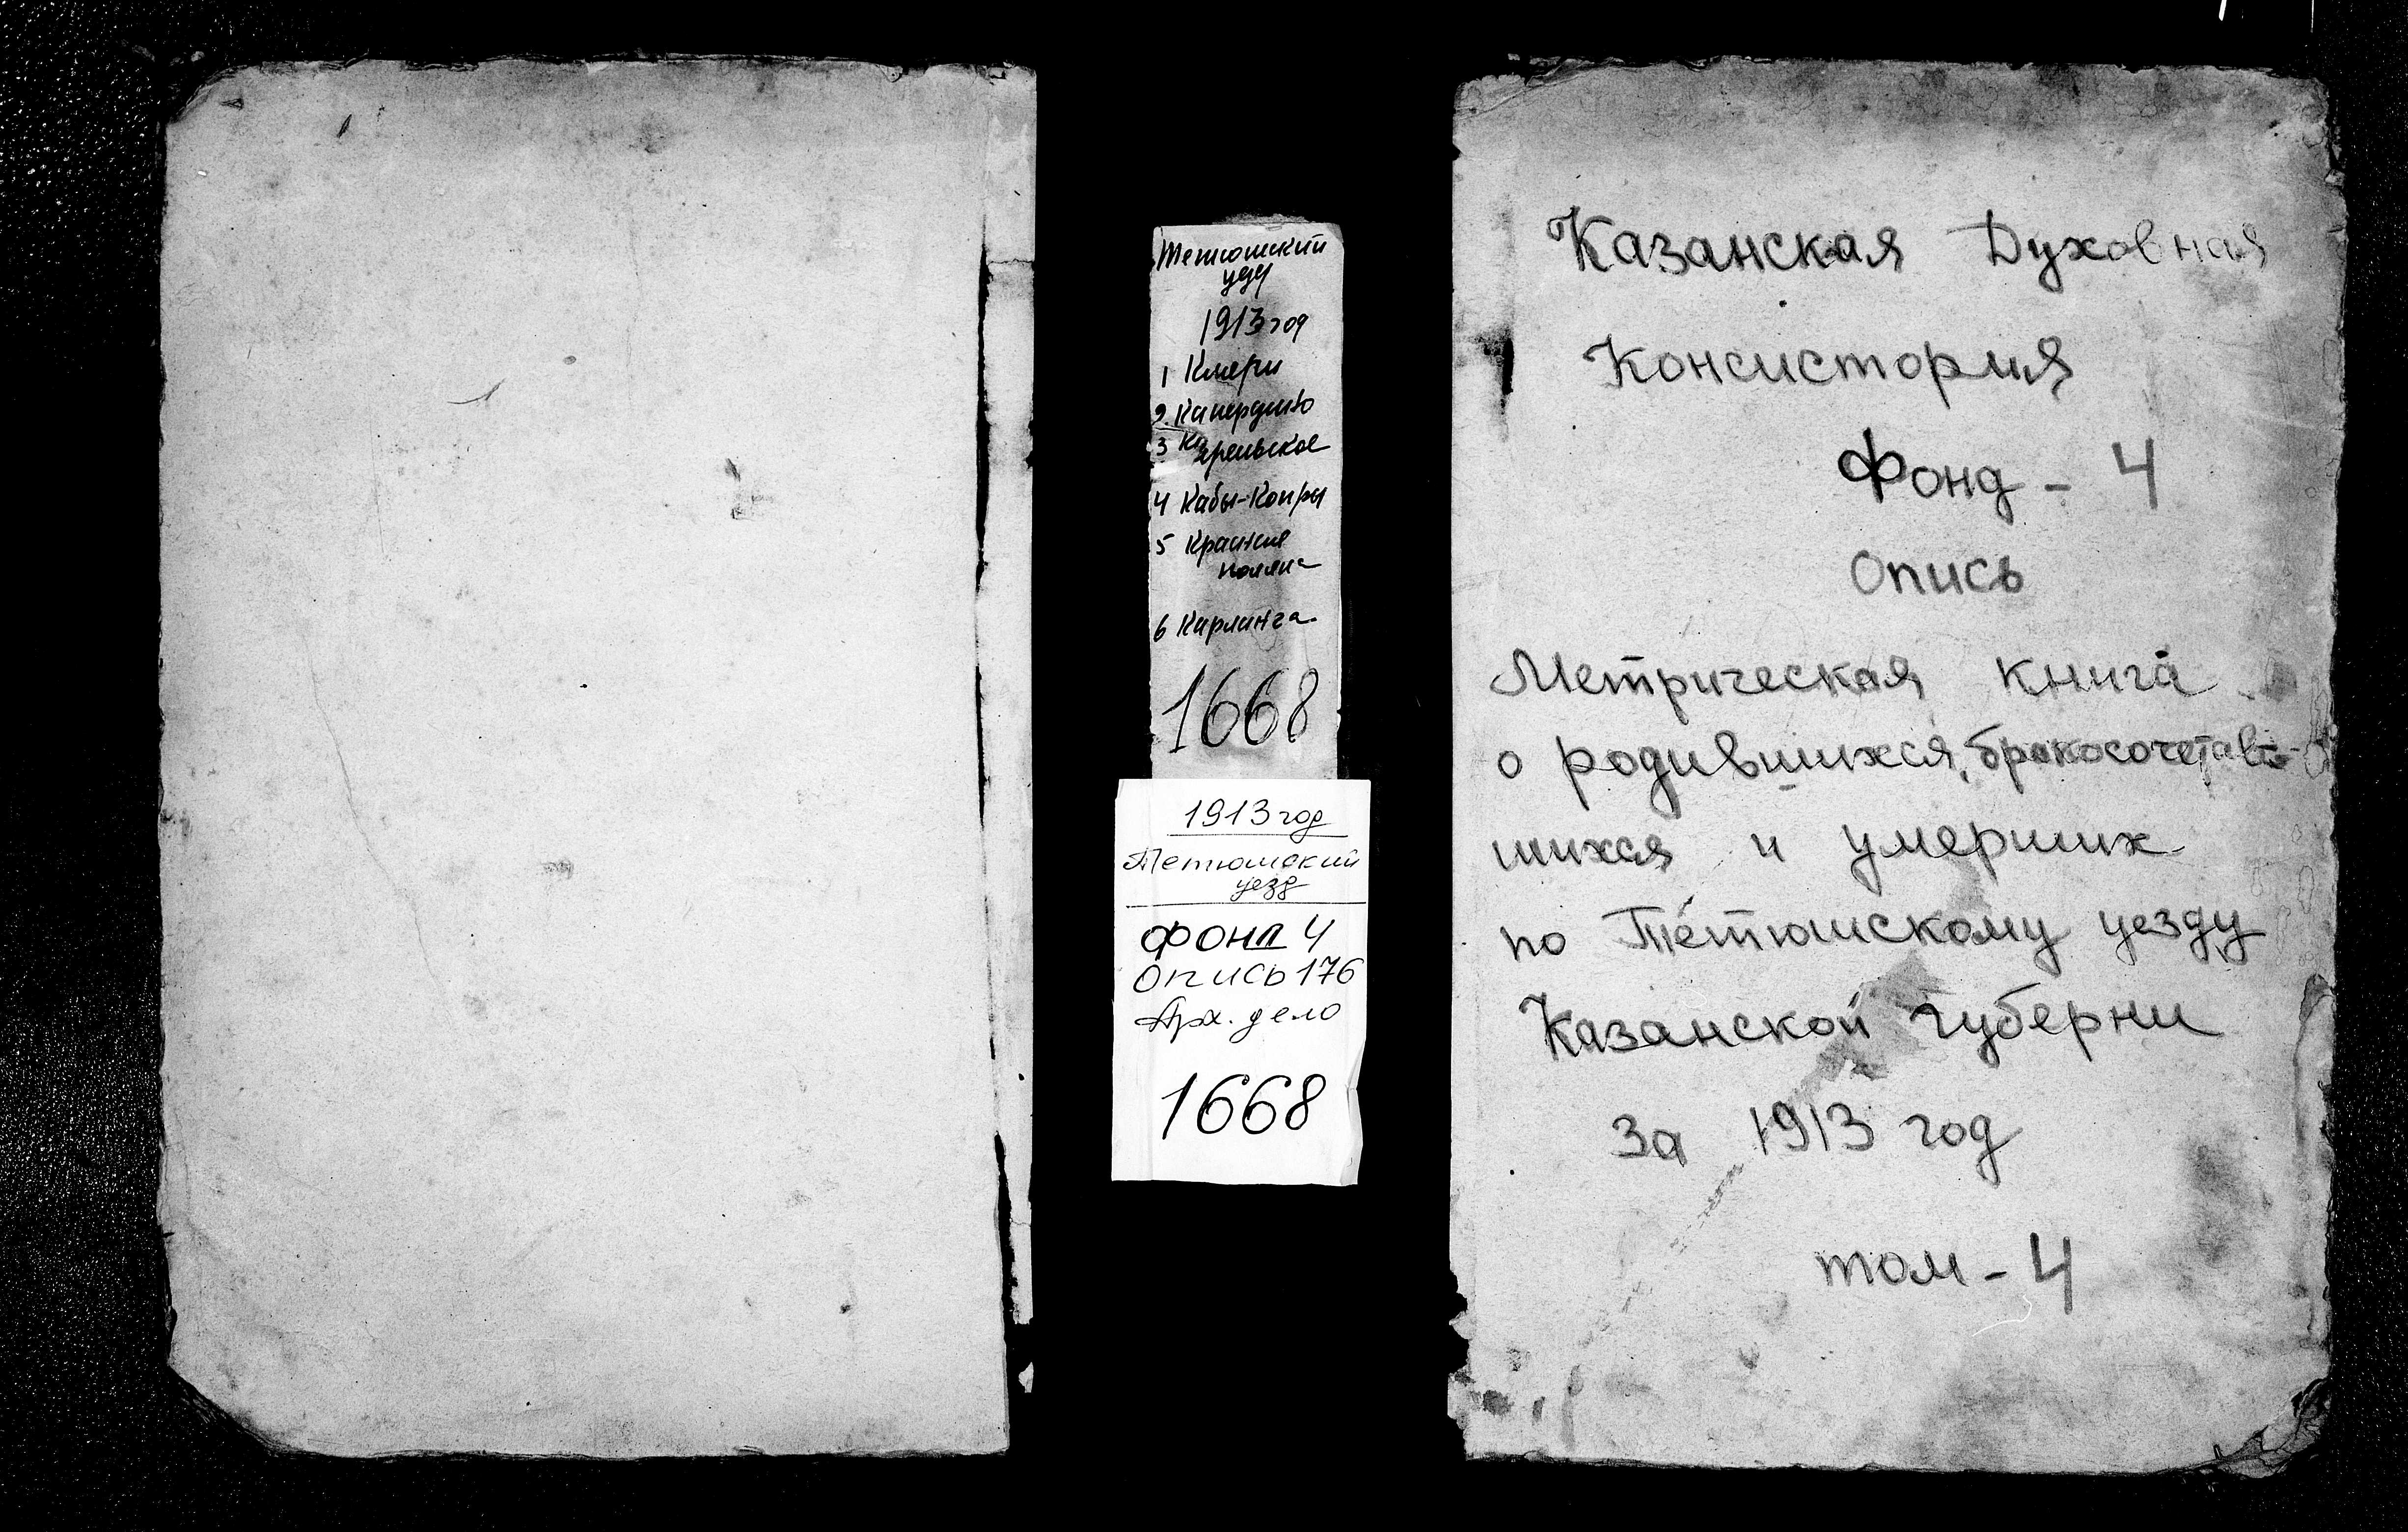 Тетюшский
уезд
1913 год
1 Кмери
2. Киперди
3 Ка
зрельское
4 Кабы-Копры
5 Красная
поляна
6 Кирлинга
1668
1913 год
Тетюшский
уезд
ФОНД 4
Опись 176
Арх. дело
1668
Казанская Духовная
Консистория
Фонд - 4
Опись
Метрическая книга
о родившихся, бракосочетав-
шихся и умерших
по Тетюшскому уезду
Казанской губерни
За 1913 год
том - 4